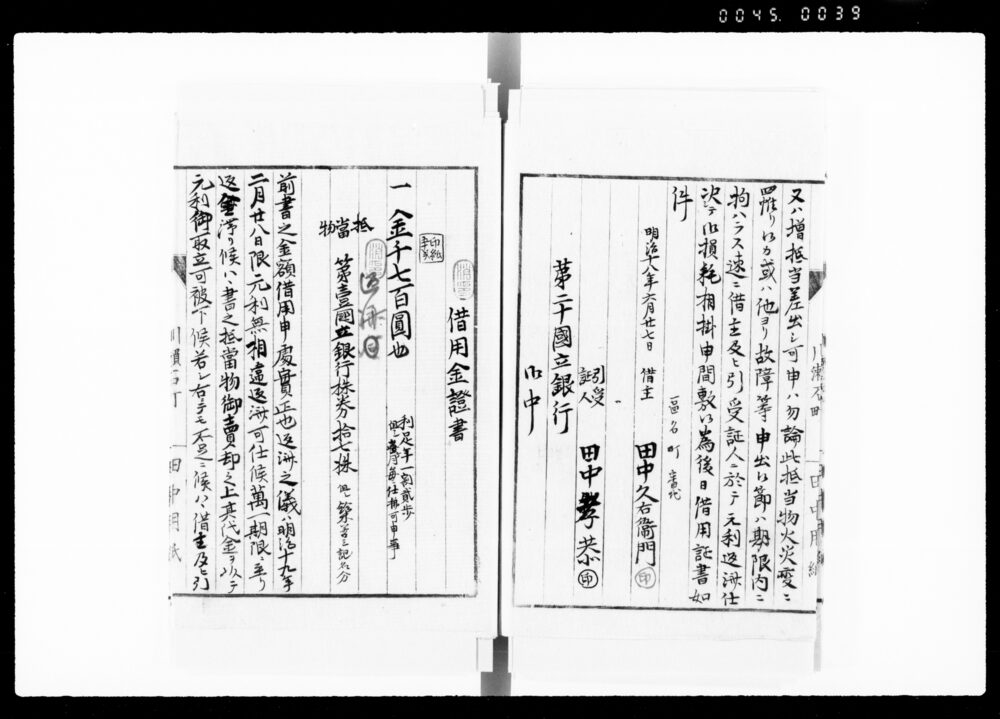 0045. 0039
又ハ増抵当差出シ可申ハ勿論此抵当物火災変ニ
罹リ候カ或ハ他ヨリ故障等申出候節ハ期限内ニ
拘ハラス速ニ借主及ヒ引受証人ニ於テ元利返済仕
決テ御損耗相掛申間敷候為後日借用証書如
件
明治十八年六月廿七日
区名町番地
借主 田中久右衛門 印
引受証人 田中孝恭 印
第二十國立銀行
御中
借用金證書
印紙
一金千七百圓也
利足年一割貳歩
抵當物
返済
第壹國立銀行株券拾七株
前書之金額借用申處實正也返済之儀ハ明治十九年
二月廿八日限元利無相違返済可仕候萬一期限ニ至リ
返金滞リ候ハヽ書之抵當物御賣却之上其代金ヲ以テ
元利御取立可被下候若シ右ニテモ不足ニ候ハヽ借主及ヒ引
田中用紙